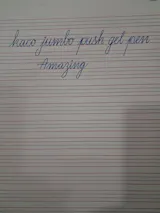 haco jumbo push gel pen
Amazing